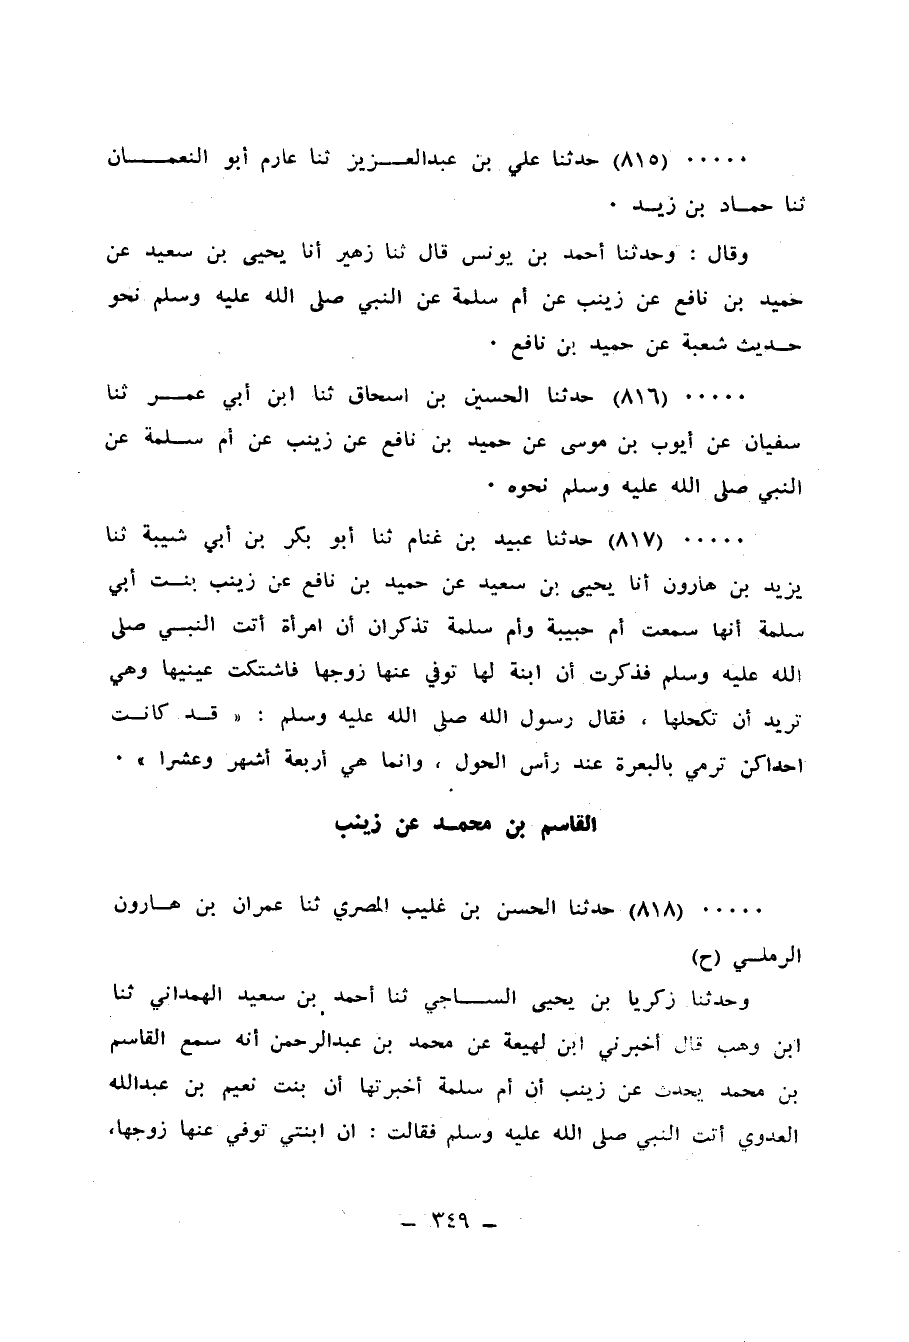 ..... (٨١٥) حدثنا علي بن عبدالعـــزيز ثنا عارم أبو النعمـــــان
ثنا حمـاد بن زيـد .
وقال : وحدثنا أحمد بن يونس قال ثنا زهير أنا يحيى بن سعيد عن
حميد بن نافع عن زينب عن أم سلمة عن النبي صلى الله عليه وسلم نحو
حـديث شعبة عن حميد بن نافع .
..... (٨١٦) حدثنا الحسين بن اسحاق ثنا ابن أبي عمـــر ثنا
سفيان عن أيوب بن موسى عن حميد بن نافع عن زينب عن أم ســلمة عن
النبي صلى الله عليه وسلم نحوه .
..... (٨١٧) حدثنا عبيد بن غنام ثنا أبو بكر بن أبي شيبة ثنا
يزيد بن هارون أنا يحيى بن سعيد عن حميد بن نافع عن زينب بنـت أبي
سلمة أنها سمعت أم حبيبة وأم سلمة تذكران أن امرأة أتت النبـي صلى
الله عليه وسلم فذكرت أن ابنة لها توفي عنها زوجها فاشتكت عينيها وهي
تريد أن تكحلها ، فقال رسول الله صلى الله عليه وسلم : « قـد كانـت
احداكن ترمي بالبعرة عند رأس الحول ، وانما هي أربعة أشهر وعشرا » .
القاسم بن محمـد عن زينب
..... (٨١٨) حدثنا الحسن بن غليب المصري ثنا عمران بن هـارون
الرملـي (ح)
وحدثنا زكريا بن يحيى الســـاجي ثنا أحمد بن سعيد الهمداني ثنا
ابن وهب قال أخبرني ابن لهيعة عن محمد بن عبدالرحمن أنه سمع القاسم
بن محمد يحدث عن زينب أن أم سلمة أخبرتها أن بنت نعيم بن عبدالله
العدوي أتت النبي صلى الله عليه وسلم فقالت : ان ابنتي توفي عنها زوجها،
– ٣٤٩ –